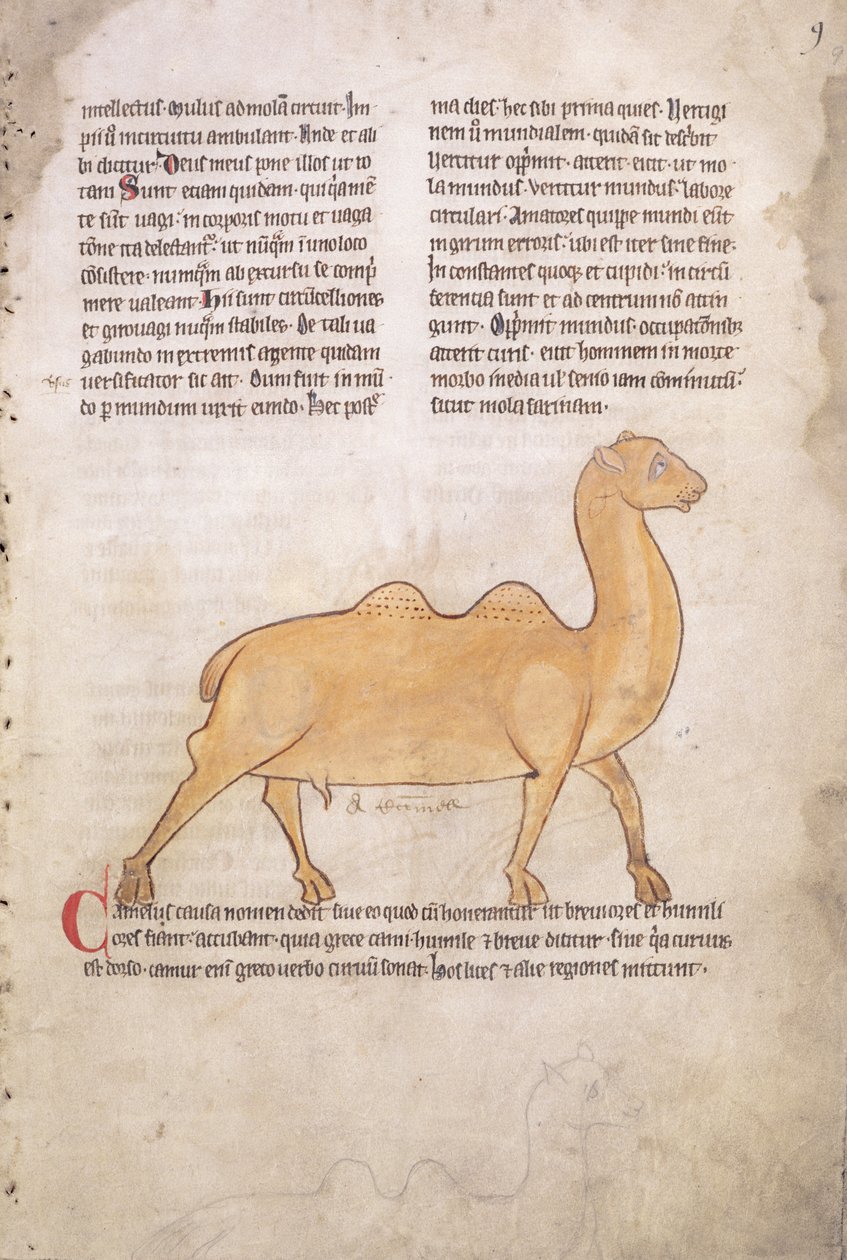 9
intellectus. Mulus ad molā circuit. Im
pii ū in circuitu ambulant. Unde et ali
bi dicitur. Deus meus pone illos ut ro
tam Sunt etiam quidam. qui
te sūt vagi. in corporis motu et vaga
tōne ita delectant. ut nūqm ī uno loco
cōsistere. numqm ab excursu se comp
mere valeant. Hii sunt circūcelliones
et girovagi nuqm stabiles. De tali va
gabundo in extremis agente quidam
versificator sic ait. Dum fuit in mū
do p mundum vixit eundo. Hec post
ma dies. hec sibi prima quies. Vertigi
nem ū mundialem. quidā sic describit
Vertitur opprimit. atterit. eicit. ut mo
la mundus. Vertitur mundus. labore
circulari. Amatores quippe mundi eūt
in girum erroris. ubi est iter sine fine.
In constantes quoq et cupidi. in circū
ferencia sunt et ad centrum nō attin
gunt. Opprimit mundus. occupatōnibz
atterit curis. eicit hominem in morte
morbo inedia ul senio iam cōminutū.
sicut mola farinam.
A Cammelle
Camelus causa nomen dedit sive eo quod cū honerantur ut breviores et humili
ores fiant. accubant. quia grece cami. humile ⁊ breve dicitur. sive qa curvus
est dorso. camur enī greco verbo curvū sonat. Hos licet ⁊ alie regiones mittunt.